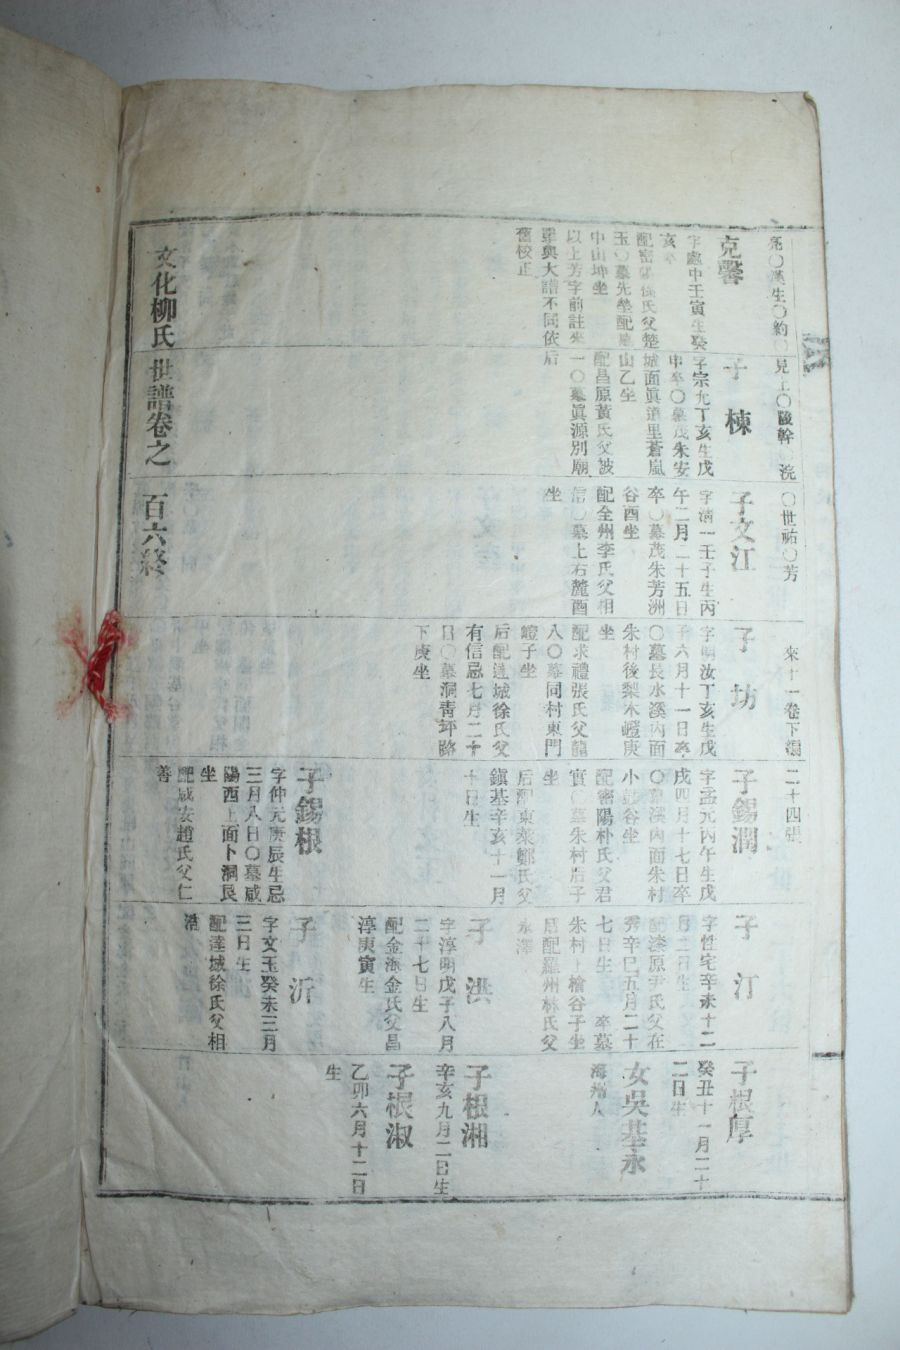 亮〇漢生〇約〇見上〇陵幹〇浣〇世祐〇芳
來十一卷下編二十四張
克馨
字處中壬寅生癸
亥卒
配密陽徐氏父楚
玉〇墓先塋配墓
中山坤坐
以上芳字前註來
單與大譜不同依
舊校正
子棟
字宗九丁亥生戊
申卒〇墓茂朱安
城面眞道里蒼嵐
山乙坐
配昌原黃氏父
一〇墓眞源別廟
后
子文江
字清一壬子生丙
午二月二十五日
卒〇墓茂朱芳洲
谷酉坐
配全州李氏父相
信〇墓上右麓酉
坐
子坊
字明汝丁亥生戊
子六月十一日卒
〇墓長水溪內面
朱村後梨木嶝庚
坐
配求禮張氏父龍
八〇墓同村東門
嶝子坐
后配達城徐氏父
有信忌七月二十
日〇墓洞靑坪路
下庚坐
子錫潤
字孟元丙午生戊
戌四月十七日卒
〇墓溪內面朱村
小鼓谷坐
配密陽朴氏父君
實〇墓朱村后子
坐
后配東萊鄭氏父
鎭基辛亥十一月
十日生
子錫根
字仲元庚辰生忌
三月八日〇墓咸
陽西上面卜洞艮
坐
配咸安趙氏父仁
善
子汀
字性宅辛未十二
月二日生
配漆原尹氏父在
秀辛巳五月二十
七日生 卒墓
朱村上檜谷子坐
后配羅州林氏父
永澤
子洪
字淳明戊子八月
二十七日生
配金海金氏父昌
淳庚寅生
子沂
字文玉癸未三月
三日生
配達城徐氏父相
浩
子根厚
癸丑十一月二十
二日生
女吳基永
海州人
子根湘
辛亥九月二日生
子根淑
乙卯六月十二日
生
文化柳氏世譜卷之百六終